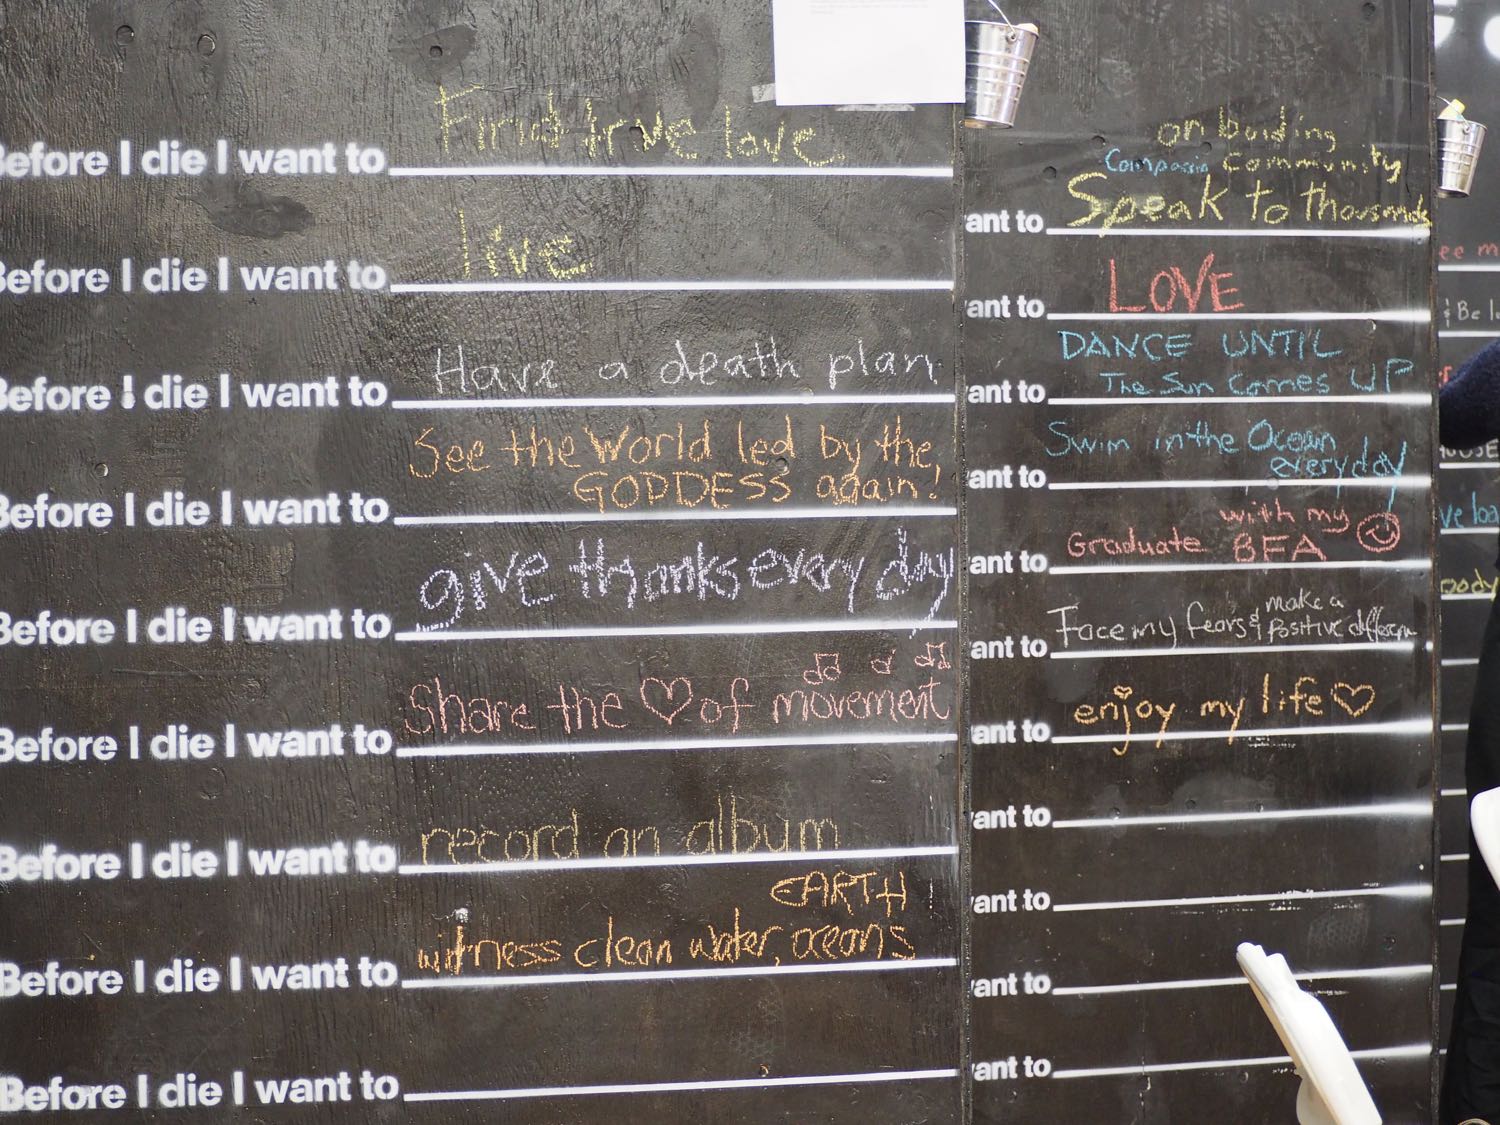 Before I die I want to Find true love.
Before I die I want to live.
Before I die I want to Have a death plan
Before I die I want to See the World led by the,
GODDESS again!
Before I die I want to give thanks every day
Before I die I want to Share the ♡ of movement
Before I die I want to record an album
EARTH!
Before I die I want to witness clean water, oceans
Before I die I want to
on building
community
ant to Speak to thousands
ant to LOVE
ant to DANCE UNTIL
The Sun Comes UP
ant to Swim in the Ocean
everyday
with my
ant to Graduate BFA
make a
ant to Face my fears & positive
ant to enjoy my life ♡
ant to
ant to
ant to
ant to
ee m
& Be lo
ve loa
oody